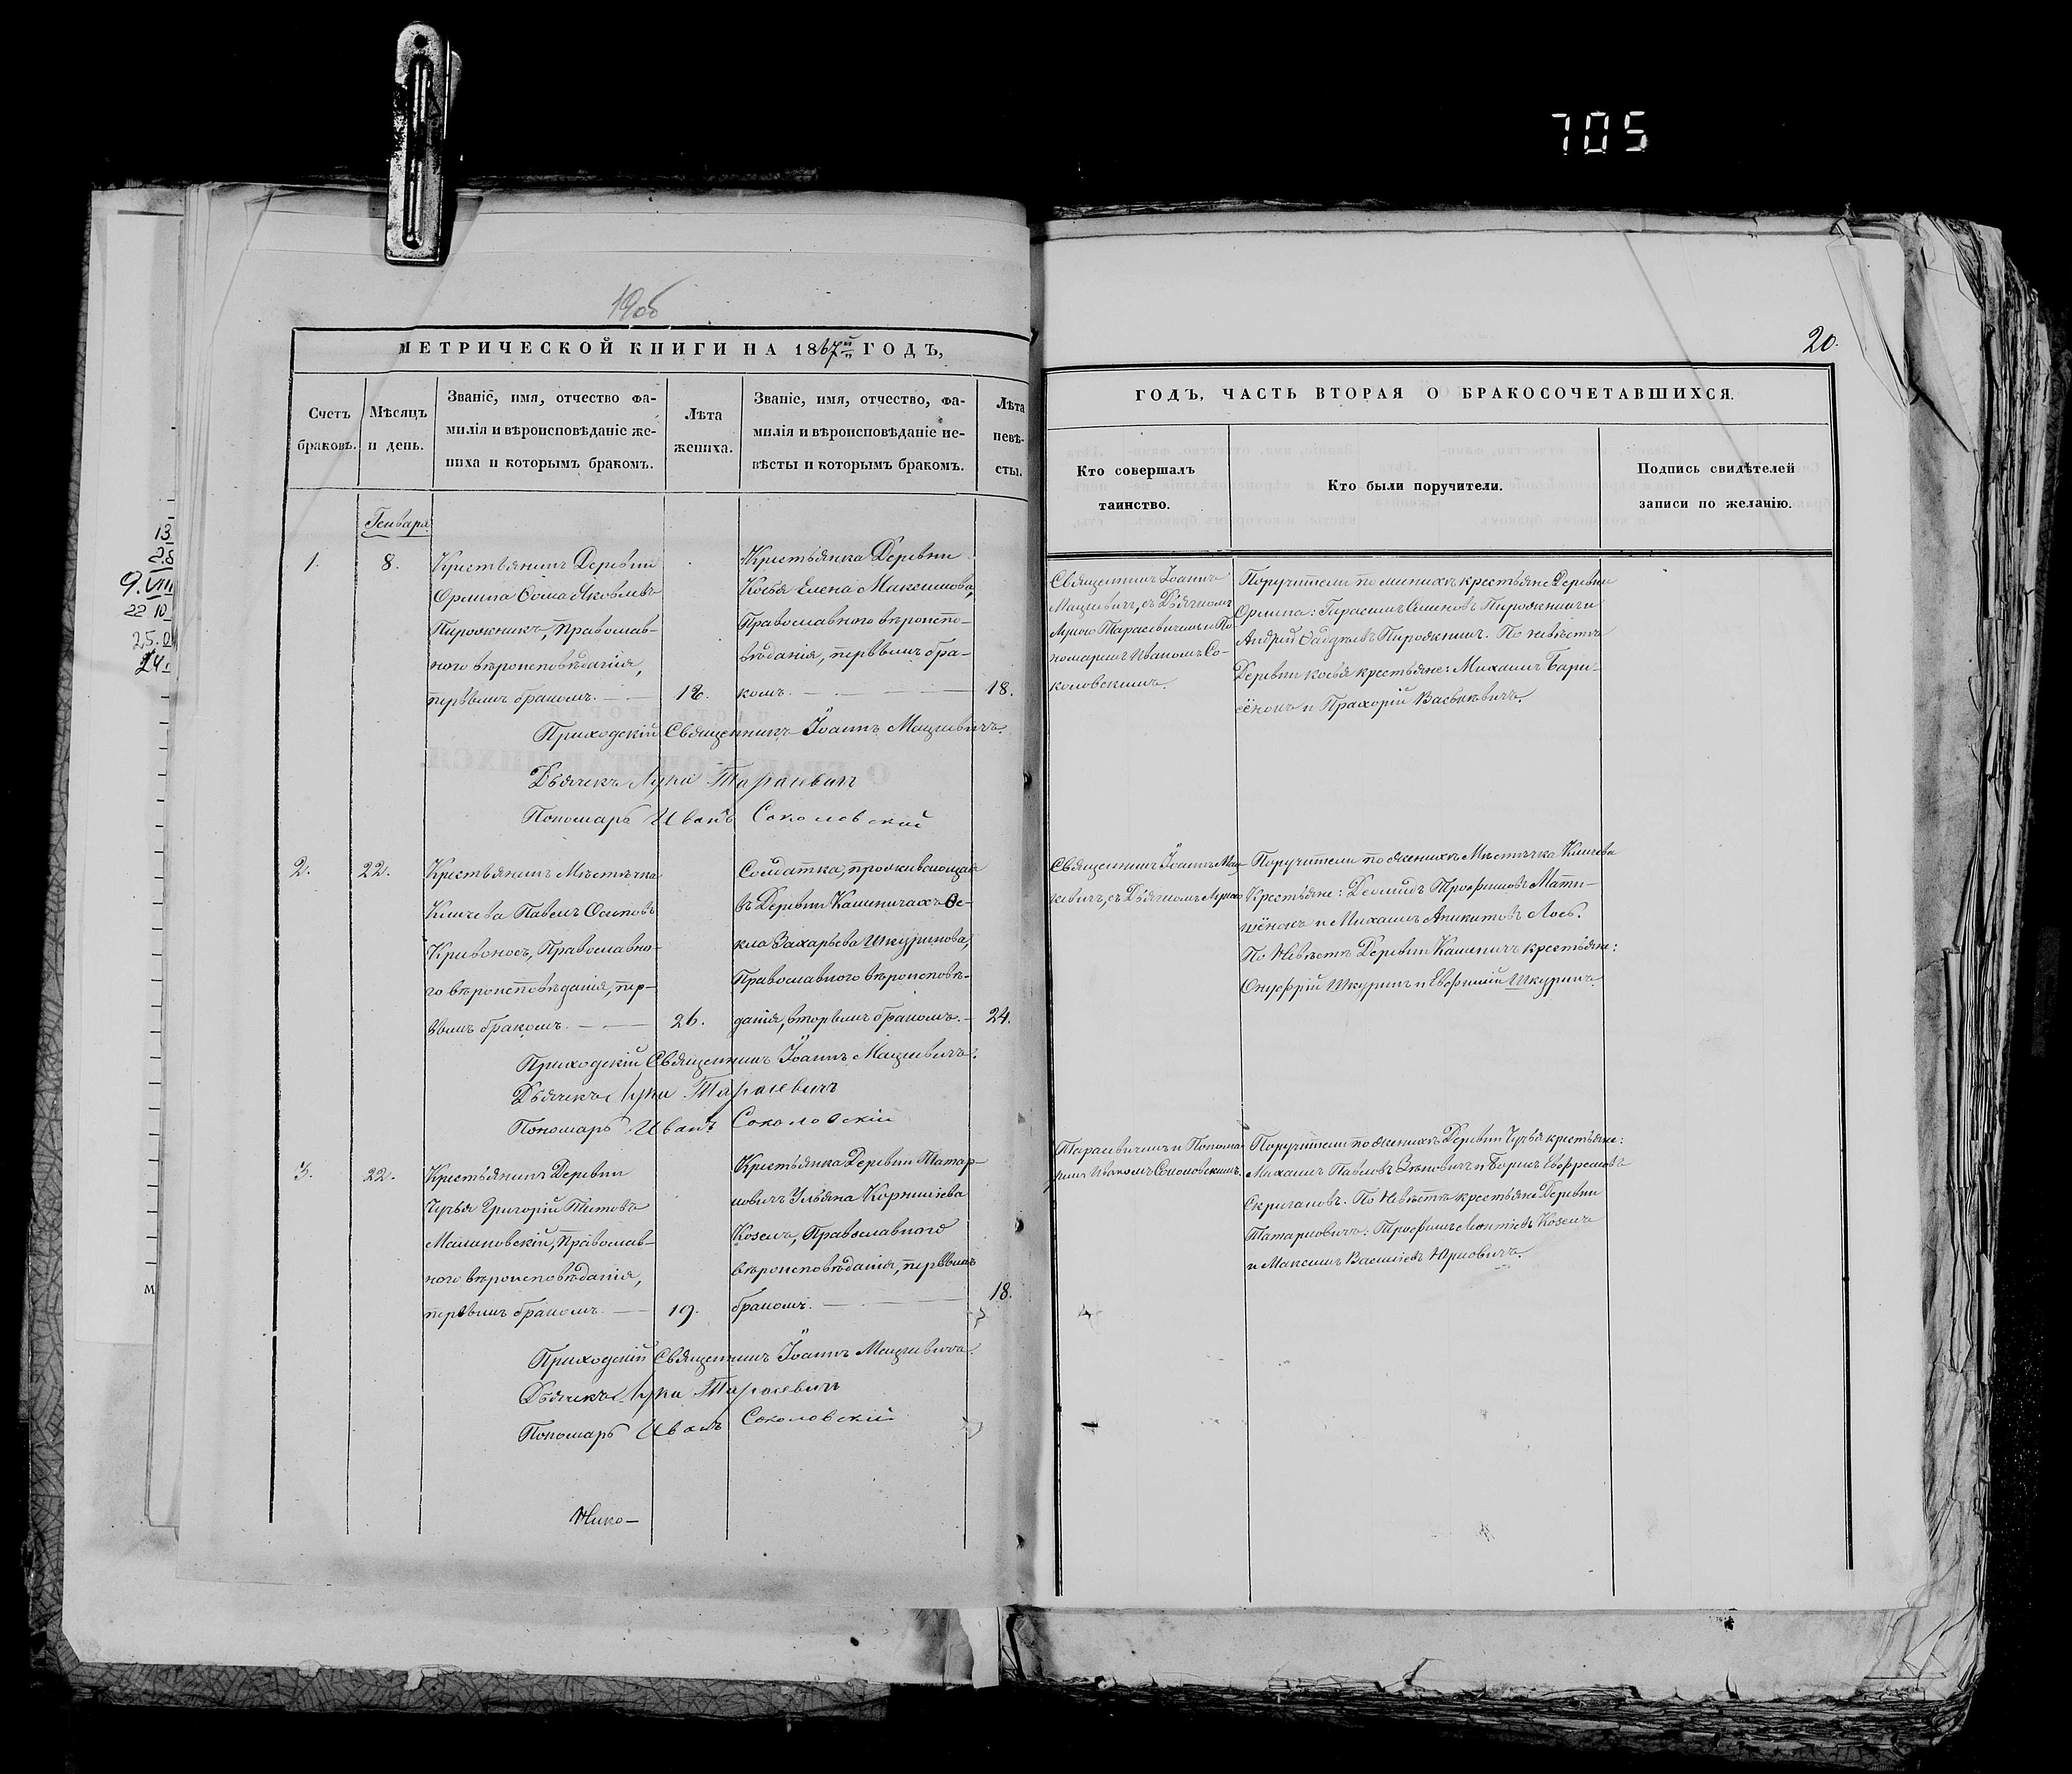 705
19об
20.
МЕТРИЧЕСКОЙ КНИГИ НА 1867й ГОДЪ,
Счетъ браковъ.
Мѣсяцъ и день.
Званіе, имя, отчество фа-
милія и вѣроисповѣданіе же-
ниха и которымъ бракомъ.
Лѣта жениха.
Званіе, имя, отчество, фа-
милія и вѣроисповѣданіе не-
вѣсты и которымъ бракомъ.
Лѣта
невѣ-
сты.
Генваря
1.
8.
Крестьянинъ Деревни
Орлина Ѳома Яковлевъ
Пирожникъ, Православ-
наго вѣроисповѣданія,
первымъ бракомъ.
18.
Крестьянка Деревни
Косья Елена Максимова,
Православного вѣроиспо-
вѣданія, первымъ бра-
комъ.
18.
Приходскій Священникъ Іоаннъ Мацкевичъ.
Дьячекъ Лука Тарасевичъ
Пономарь Иванъ Соколовскій
2.
22.
Крестьянинъ Мѣстечка
Кличева Павелъ Осиповъ
Кривоносъ, Православно-
го вѣроисповѣданія, пер-
вымъ бракомъ.
26.
Солдатка, проживающая
въ Деревни Каличичахъ Ѳе-
кла Захарьева Шкуринова,
Православного вѣроисповѣ-
данія, вторымъ бракомъ.
24.
Приходскій Священникъ Іоаннъ Мацкевичъ.
Дьячекъ Лука Тарасевичъ
Пономарь Иванъ Соколовскій
3.
22.
Крестьянинъ Деревни
Чучья Григорій Титовъ
Малановскій, Православ-
ного вѣроисповѣданія,
первымъ бракомъ.
19.
Крестьянка Деревни Татар-
новичъ Ульяна Корниліева
Козелъ, Православного
вѣроисповѣданія, первымъ
бракомъ.
18.
Приходскій Священникъ Іоаннъ Мацкевичъ.
Дьячекъ Лука Тарасевичъ
Пономарь Иванъ Соколовскій
Нико-
ГОДЪ, ЧАСТЬ ВТОРАЯ О БРАКОСОЧЕТАВШИХСЯ.
Кто совершалъ
таинство.
Кто были поручители.
Подпись свидѣтелей
записи по желанію.
Священникъ Іоаннъ
Мацкевичъ, съ Дьячкомъ
Лукою Тарасевичемъ и По-
номаремъ Иваномъ Со-
коловскимъ.
Поручители по женихѣ крестьяне Деревни
Орлина: Герасимъ Семеновъ Пирожникъ и
Андрей Ѳаддѣевъ Пирожникъ. По невѣстѣ
Деревни Косья крестьяне: Михаилъ Бари-
сёнокъ и Прохорій Васьковичъ.
Священникъ Іоаннъ Мац-
кевичъ, съ Дьячкомъ Лукою
Поручители по женихѣ Мѣстечка Кличева
Крестьяне: Деомидъ Трофимовъ Мати-
шёнокъ и Михаилъ Аникитовъ Лось.
По Невѣстѣ Деревни Каличичъ крестьяне:
Онуфрій Шкуринъ и Евфимій Шкуринъ.
Тарасевичемъ и Понома-
ремъ Иваномъ Соколовскимъ.
Поручители по женихѣ Деревни Чучья крестьяне:
Михаилъ Павловъ Зѣновичъ и Борисъ Евфремовъ
Скригановъ. По Невѣстѣ крестьяне Деревни
Татарновичъ: Трофимъ Леонтіевъ Козелъ
и Максимъ Василіевъ Юрновичъ.